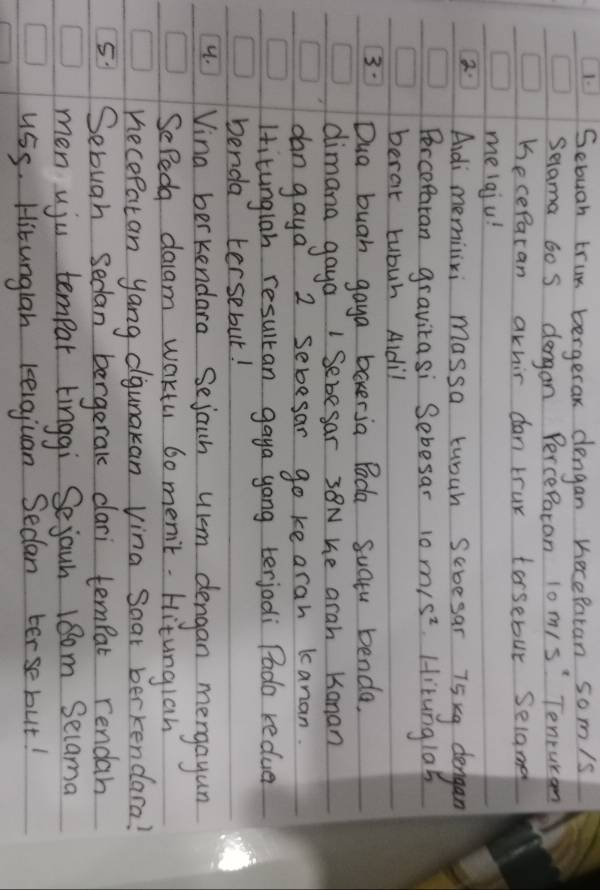 1. Sebuah truk bergerak dengan kecepatan 50 m/s
selama 60 s dengan percepatan 10 m/s². Tentukan
kecepatan akhir dan truk tersebut selama
melaju!
2. Aldi memiliki massa tubuh sebesar 75 kg dengan
percepatan gravitasi sebesar 10 m/s². Hitunglah
berat tubuh Aldi!
3. Dua buah gaya bekerja pada suatu benda,
dimana gaya 1 sebesar 38N ke arah kanan
dan gaya 2 sebesar 90 ke arah kanan.
Hitunglah resultan gaya yang terjadi pada kedua
benda tersebut!
4. Vina berkendara sejauh 4km dengan mengayun
sepeda dalam waktu 60 menit. Hitunglah
kecepatan yang digunakan Vina saat berkendara!
5. Sebuah sedan bergerak dari tempat rendah
menuju tempat tinggi sejauh 180m selama
45s. Hitunglah kelajuan sedan tersebut!